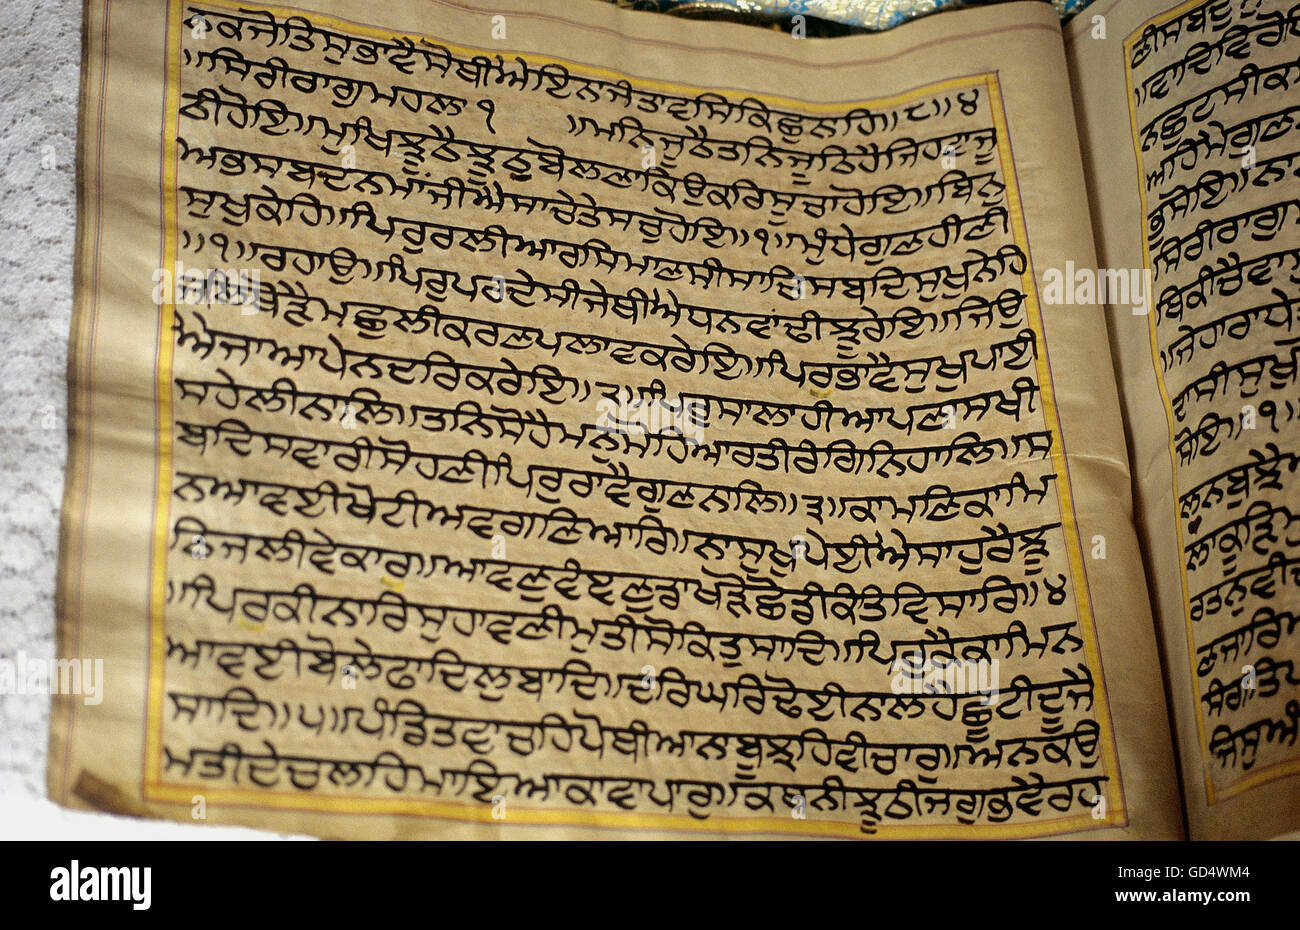 ਨਕਜੋਤਿਸੁਭਾਵੈਸੋਥੀਐਇਨਜੰਤਾਵਸਿਕਿਛੁਨਾਹਿ॥੮॥੪
॥ਸਿਰੀਰਾਗੁਮਹਲਾ੧ ॥ਮਨਿਜੂਠੈਤਨਿਜੂਠਿਹੈਜਿਹਵਾਜੂ
ਠੀਹੋਇ॥ਮੁਖਿਝੂਠੈਝੂਠੁਬੋਲਣਾਕਿਉਕਰਿਸੂਚਾਹੋਇ॥ਬਿਨੁ
ਅਭਸਬਦਨਮਾਂਜੀਐਸਾਚੇਤੇਸਚੁਹੋਇ॥੧॥ਮੁੰਧੇਗੁਣਹੀਣੀ
ਸੁਖੁਕੇਹਿ॥ਪਿਰੁਰਲੀਆਰਸਿਮਾਣਸੀਸਾਚਿਸਬਦਿਸੁਖੁਨੇਹਿ
॥੧॥ਰਹਾਉ॥ਪਿਰੁਪਰਦੇਸੀਜੇਥੀਐਧਨਵਾਂਢੀਝੂਰੇਇ॥ਜਿਉ
ਜਲਿਥੋੜੈਮਛੁਲੀਕਰਣਪਲਾਵਕਰੇਇ॥ਪਿਰਭਾਵੈਸੁਖੁਪਾਈ
ਐਜਾਆਪੇਨਦਰਿਕਰੇਇ॥੨॥ਪਿਰੁਸਾਲਾਹੀਆਪਣਾਸਖੀ
ਸਹੇਲੀਨਾਲਿ॥ਤਨਿਸੋਹੈਮਨੁਮੋਹਿਆਰਤੀਰੰਗਿਨਿਹਾਲਿ॥ਸ
ਬਦਿਸਵਾਰੀਸੋਹਣੀਪਿਰੁਰਾਵੈਗੁਣਨਾਲਿ॥੩॥ਕਾਮਣਿਕਾਮਿ
ਨਆਵਈਖੋਟੀਅਵਗਣਿਆਰਿ॥ਨਾਸੁਖੁਪੇਈਐਸਾਹੁਰੈਝੂ
ਠਿਜਲੀਵੇਕਾਰ॥ਆਵਣੁਵੰਞਣੁਡਾਖੜੋਛੋਡੀਕੰਤਿਵਿਸਾਰਿ॥੪
॥ਪਿਰਕੀਨਾਰਿਸੁਹਾਵਣੀਮੁਤੀਸੋਕਿਤੁਸਾਦਿ॥ਪਿਰਕੈਕਾਮਿਨ
ਆਵਈਬੋਲੇਫਾਦਿਲੁਬਾਦਿ॥ਦਰਿਘਰਿਢੋਈਨਾਲਹੈਛੂਟੀਦੂਜੈ
ਸਾਦਿ॥੫॥ਪੰਡਿਤਵਾਚਹਿਪੋਥੀਆਨਬੂਝਹਿਵੀਚਾਰੁ॥ਅਨਕਉ
ਮਤੀਦੇਚਲਹਿਮਾਇਆਕਾਵਾਪਾਰੁ॥ਕਥਨੀਝੂਠੀਜਗੁਭਵੈਰਹ
alamy
Image ID: GD4WM4
www.alamy.com